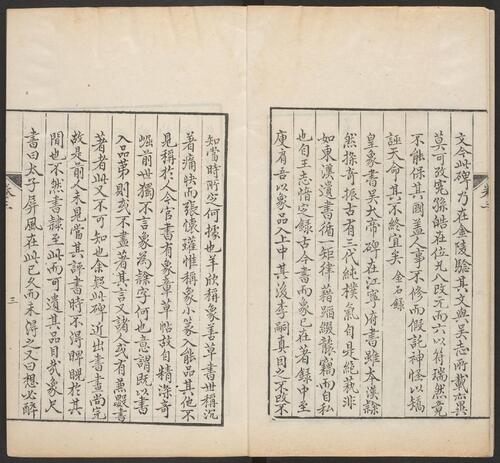 文今此碑乃在金陵驗其文與吳志所載亦異
莫可攷究孫皓在位凡八改元而六以符瑞然竟
不能保其國蓋人事不修而假託神怪以矯
誣天命其不終宜矣 金石錄
皇象書吳大帝碑在江寧府書雖本漢隸
然探奇振古有三代純樸氣自是絶藝非
如東漢遺書循一矩律藉蹈綴襲竊而自私
也自王志愔定錄古今書而象已在著錄中至
庾肩吾以象品入上中其後李嗣真因之不改不
知當時所定何據也羊欣稱象善草書世稱沉
著痛快而張懷瓘惟稱象小篆入能品其他不
見稱於人今官書有象章草帖故自精深奇
崛前世獨不言象為隸字何也意謂既以書
入品第則或不盡著其言又諸人或有兼毀書
著者此又不可知也余疑此碑近出書畫尚完
故是前人未見當其評書時不得睥睨於其
間也不然書隸至此而可遺其品目哉象尺
書曰太子屏風在此已久而未得之又曰想必醉
三